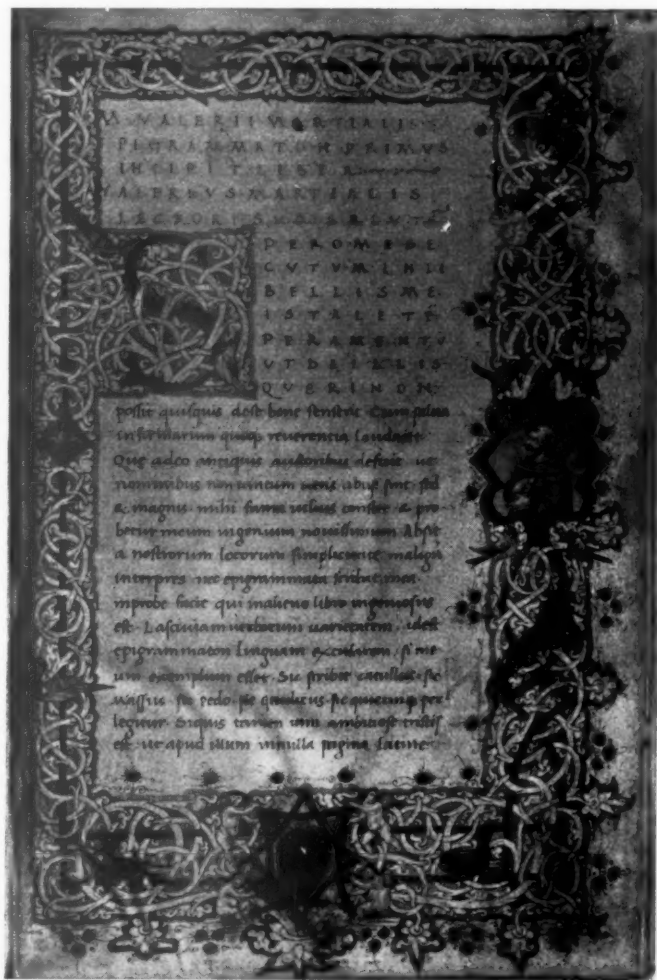 M VALERII MARTIALIS
EPIGRAMMATON PRIMVS
INCIPIT
VALERIVS MARTIALIS
LECTORI SVO
S PERO ME SE
CVTVM IN LI
BELLIS ME
IS TALE TE
PERAMENTV
VT DE ILLIS
QVERI NON
possit quisquis de se bene senserit Cum salua
infimarum quoq reuerentia
Que adeo antiquis auctoribus defuit ut
nominibus non tantum ueris abusi sint sed
& magnis mihi fama uilius constet & pro
betur meum ingenium nouissimum Absit
a nostrorum iocorum simplicitate malign
interpres nec epigrammata scribat mea
improbe facit qui in alieno libro ingeniosus
est Lasciuiam uerborum ueritatem idest
epigrammaton linguam excusarem si me
um exemplum esset Sic scribit catullus sic
sic pedo sic sic quicunq per
legitur Siquis tamen tam ambitiose tristis
est ut apud illum in nulla pagina latine